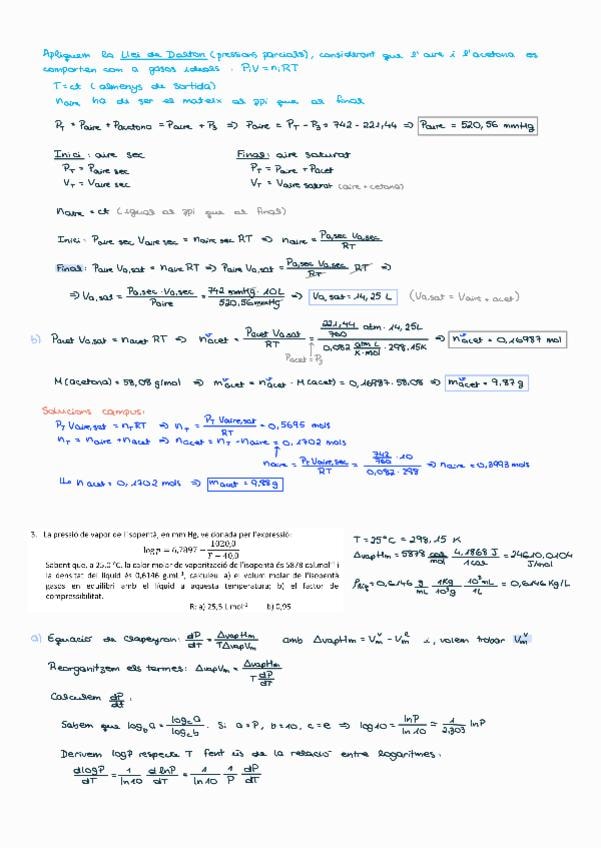 Apliquem la Llei de Dalton (pressions parcials), considerant que l'aire i l'acetona es
comporten com a gasos ideals. PiV = niRT
T = ct (almenys de sortida)
naire ha de ser el mateix al ppi que al final
PT = Paire + Pacetona = Paire + P3 ⇒ Paire = PT - P3 = 742 - 221,44 ⇒ Paire = 520,56 mmHg
Inici: aire sec Final: aire saturat
PT = Paire sec PT = Paire + Pacet
VT = Vaire sec VT = Vaire saturat (aire + cetona)
naire = ct (igual al ppi que al final)
Inici: Paire sec Vaire sec = naire sec RT ⇒ naire = Pa,sec Va,sec / RT
Final: Paire Va,sat = naire RT ⇒ Paire Va,sat = Pa,sec Va,sec / RT · RT ⇒
⇒ Va,sat = Pa,sec · Va,sec / Paire = 742 mmHg · 10L / 520,56 mmHg ⇒ Va,sat = 14,25 L (Va,sat = Vaire + acet)
b) Pacet Va,sat = nacet RT ⇒ nᵛacet = Pacet Va,sat / RT = 221,44/760 atm · 14,25L / 0,082 atm L/K·mol · 298,15K ⇒ nᵛacet = 0,16987 mol
Pacet = P3
M(acetona) = 58,08 g/mol ⇒ mᵛacet = nᵛacet · M(acet) = 0,16987 · 58,08 ⇒ mᵛacet = 9,87 g
Solucions campus:
PT Vaire,sat = nT RT ⇒ nT = PT Vaire,sat / RT = 0,5695 mols
nT = naire + nacet ⇒ nacet = nT - naire = 0,1702 mols
naire = PT Vaire,sec / RT = 742/760 · 10 / 0,082 · 298 ⇒ naire = 0,3993 mols
nacet = 0,1702 mols ⇒ macet = 9,88 g
3. La pressió de vapor de l'isopentà, en mm Hg, ve donada per l'expressió:
log p = 6,7897 - 1020,0 / T - 40,0
Sabent que, a 25,0 °C, la calor molar de vaporització de l'isopentà és 5878 cal.mol⁻¹ i
la densitat del líquid és 0,6146 g.mL⁻¹, calculeu: a) el volum molar de l'isopentà
gasós en equilibri amb el líquid a aquesta temperatura; b) el factor de
compressibilitat.
R: a) 25,5 L mol⁻¹ b) 0,95
T = 25°C = 298,15 K
ΔvapHm = 5878 cal/mol · 4,1868 J / 1 cal = 24610,0104 J/mol
ρliq = 0,6146 g/mL · 1Kg/10³g · 10³mL/1L = 0,6146 Kg/L
a) Equació de Clapeyron: dP/dT = ΔvapHm / TΔvapVm amb ΔvapHm = Vmᵛ - Vmˡ i, volem trobar Vmᵛ
Reorganitzem els termes: ΔvapVm = ΔvapHm / T dP/dT
Calculem dP/dt:
Sabem que logb a = logc a / logc b. Si a = P, b = 10, c = e ⇒ log10 = lnP / ln10 = 1/2,303 lnP
Derivem logP respecte T fent ús de la relació entre logaritmes:
dlogP/dT = 1/ln10 dlnP/dT = 1/ln10 1/P dP/dT